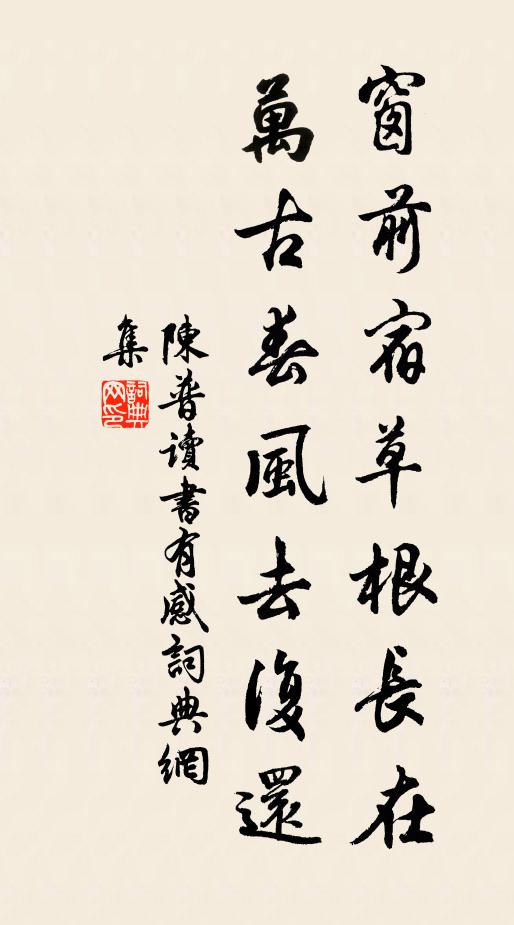 窗前宿草根長在
萬古春風去復還
陳普讀書有感詞典網
集
詞典
网印